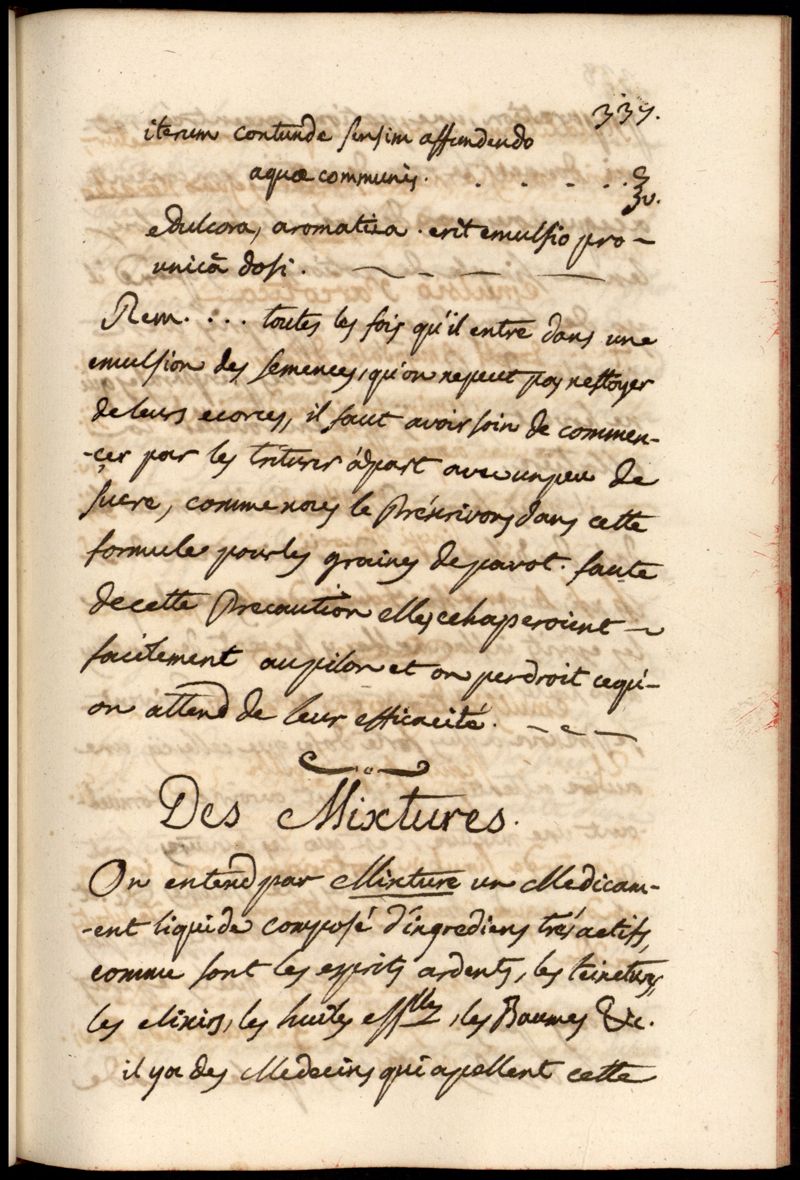 337.
iterum contunde sensim affundendo
aquæ communis . . . . . . ℥v.
edulcora, aromatiza . erit emulsio pro -
unicâ dosi .
Rem. . . . toutes les fois qu'il entre dans une
emulsion des semences, qu'on ne peut pas nettoyer
de leurs ecorces, il faut avoir soin de commen-
-çer par les triturer àpart avec un peu de
sucre, comme nous le Préscrivons dans cette
formule pour les graines de pavot. faute
de cette Precaution elles echaperoient -
facilement au pilon et on perdroit cequ'-
on attend de leur efficacité .
Des Mixtures.
On entend par Mixture un Medicam-
-ent liquide composé d'ingrediens trés actifs,
comme sont les esprits ardents, les teintures,
les elixirs, les huiles eſſlles, les Baumes &c.
il ya des Medecins qui apellent cette